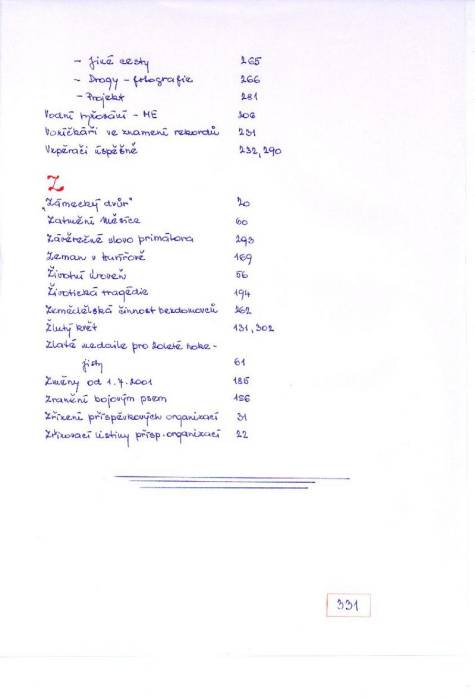 - Jiné cesty 265
- Drogy - fotografie 266
- Projekt 281
Vodní - ME 206
Vozíčkáři ve znamení rekordů 231
Vzpěrači úspěšně 232, 290
Z
„Zámecký dvůr" 20
Zatmění Měsíce 60
Závěrečné slovo primátora 293
Zeman v 169
Životní úroveň 56
Životická tragédie 194
Zemědělská činnost bezdomovců 262
Žlutý květ 131, 302
Zlaté medaile pro 20leté hoke-
jisty 61
Změny od 1.7.2001 185
Zranění bojovým psem 156
Zřízení příspěvkových organizací 31
Zřizovací listiny přísp. organizací 22
331